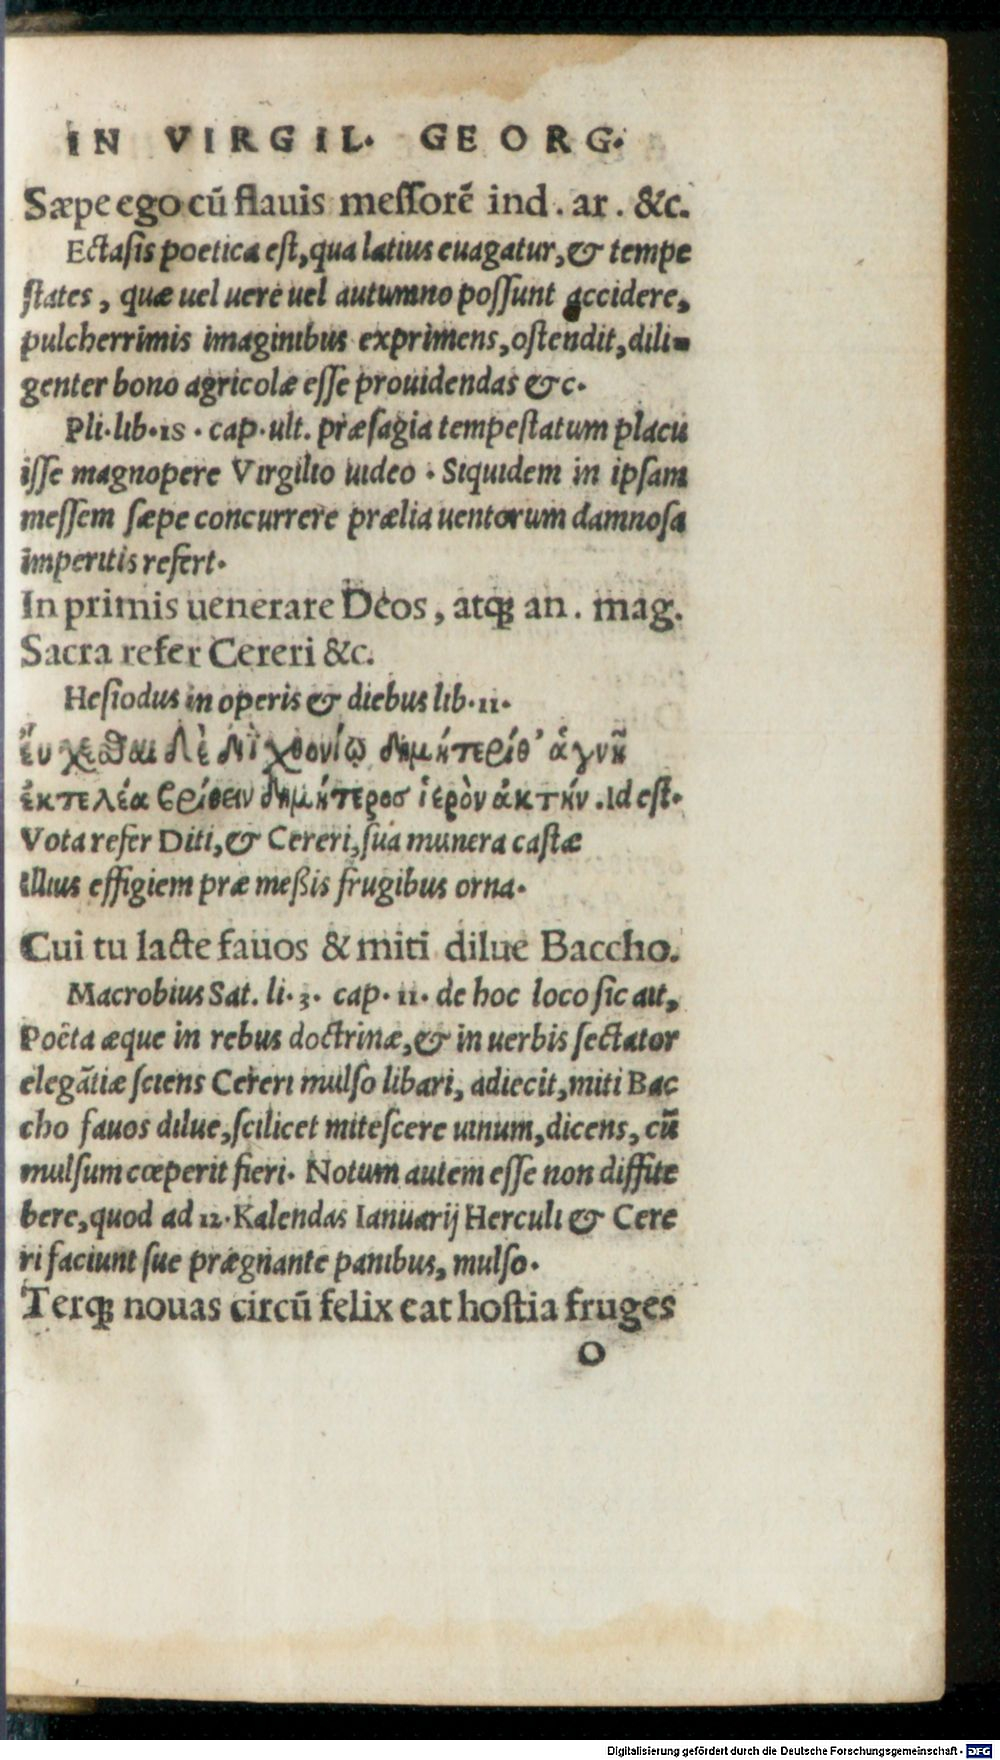 IN VIRGIL. GEORG.
Sæpe ego cũ flauis messorẽ ind. ar. &c.
Ectasis poetica est, qua latius euagatur, & tempe
states, quæ uel uere uel autumno possunt accidere,
pulcherrimis imaginibus exprimens, ostendit, dili-
genter bono agricolæ esse prouidendas &c.
Pli. lib. 18. cap. ult. præsagia tempestatum placu
isse magnopere Virgilio uideo. Siquidem in ipsam
messem sæpe concurrere prælia uentorum damnosa
imperitis refert.
In primis uenerare Deos, atq; an. mag.
Sacra refer Cereri &c.
Hesiodus in operis & diebus lib. 11.
ἔυχεσθαι δὲ διῒ χθονίῳ δημήτερίθ' ἁγνῆ
ἐκτελέα βρίθειν δημήτεροσ ἱερὸν ἀκτήν. Id est.
Vota refer Diti, & Cereri, sua munera castæ
illius effigiem præ meßis frugibus orna.
Cui tu lacte fauos & miti dilue Baccho.
Macrobius Sat. li. 3. cap. 11. de hoc loco sic ait,
Poëta æque in rebus doctrinæ, & in uerbis sectator
elegãtiæ sciens Cereri mulso libari, adiecit, miti Bac
cho fauos dilue, scilicet mitescere uinum, dicens, cũ
mulsum cœperit fieri. Notum autem esse non diffite
bere, quod ad 12. Kalendas Ianuarij Herculi & Cere
ri faciunt sue prægnante panibus, mulso.
Terq; nouas circũ felix eat hostia fruges
O
Digitalisierung gefördert durch die Deutsche Forschungsgemeinschaft - DFG